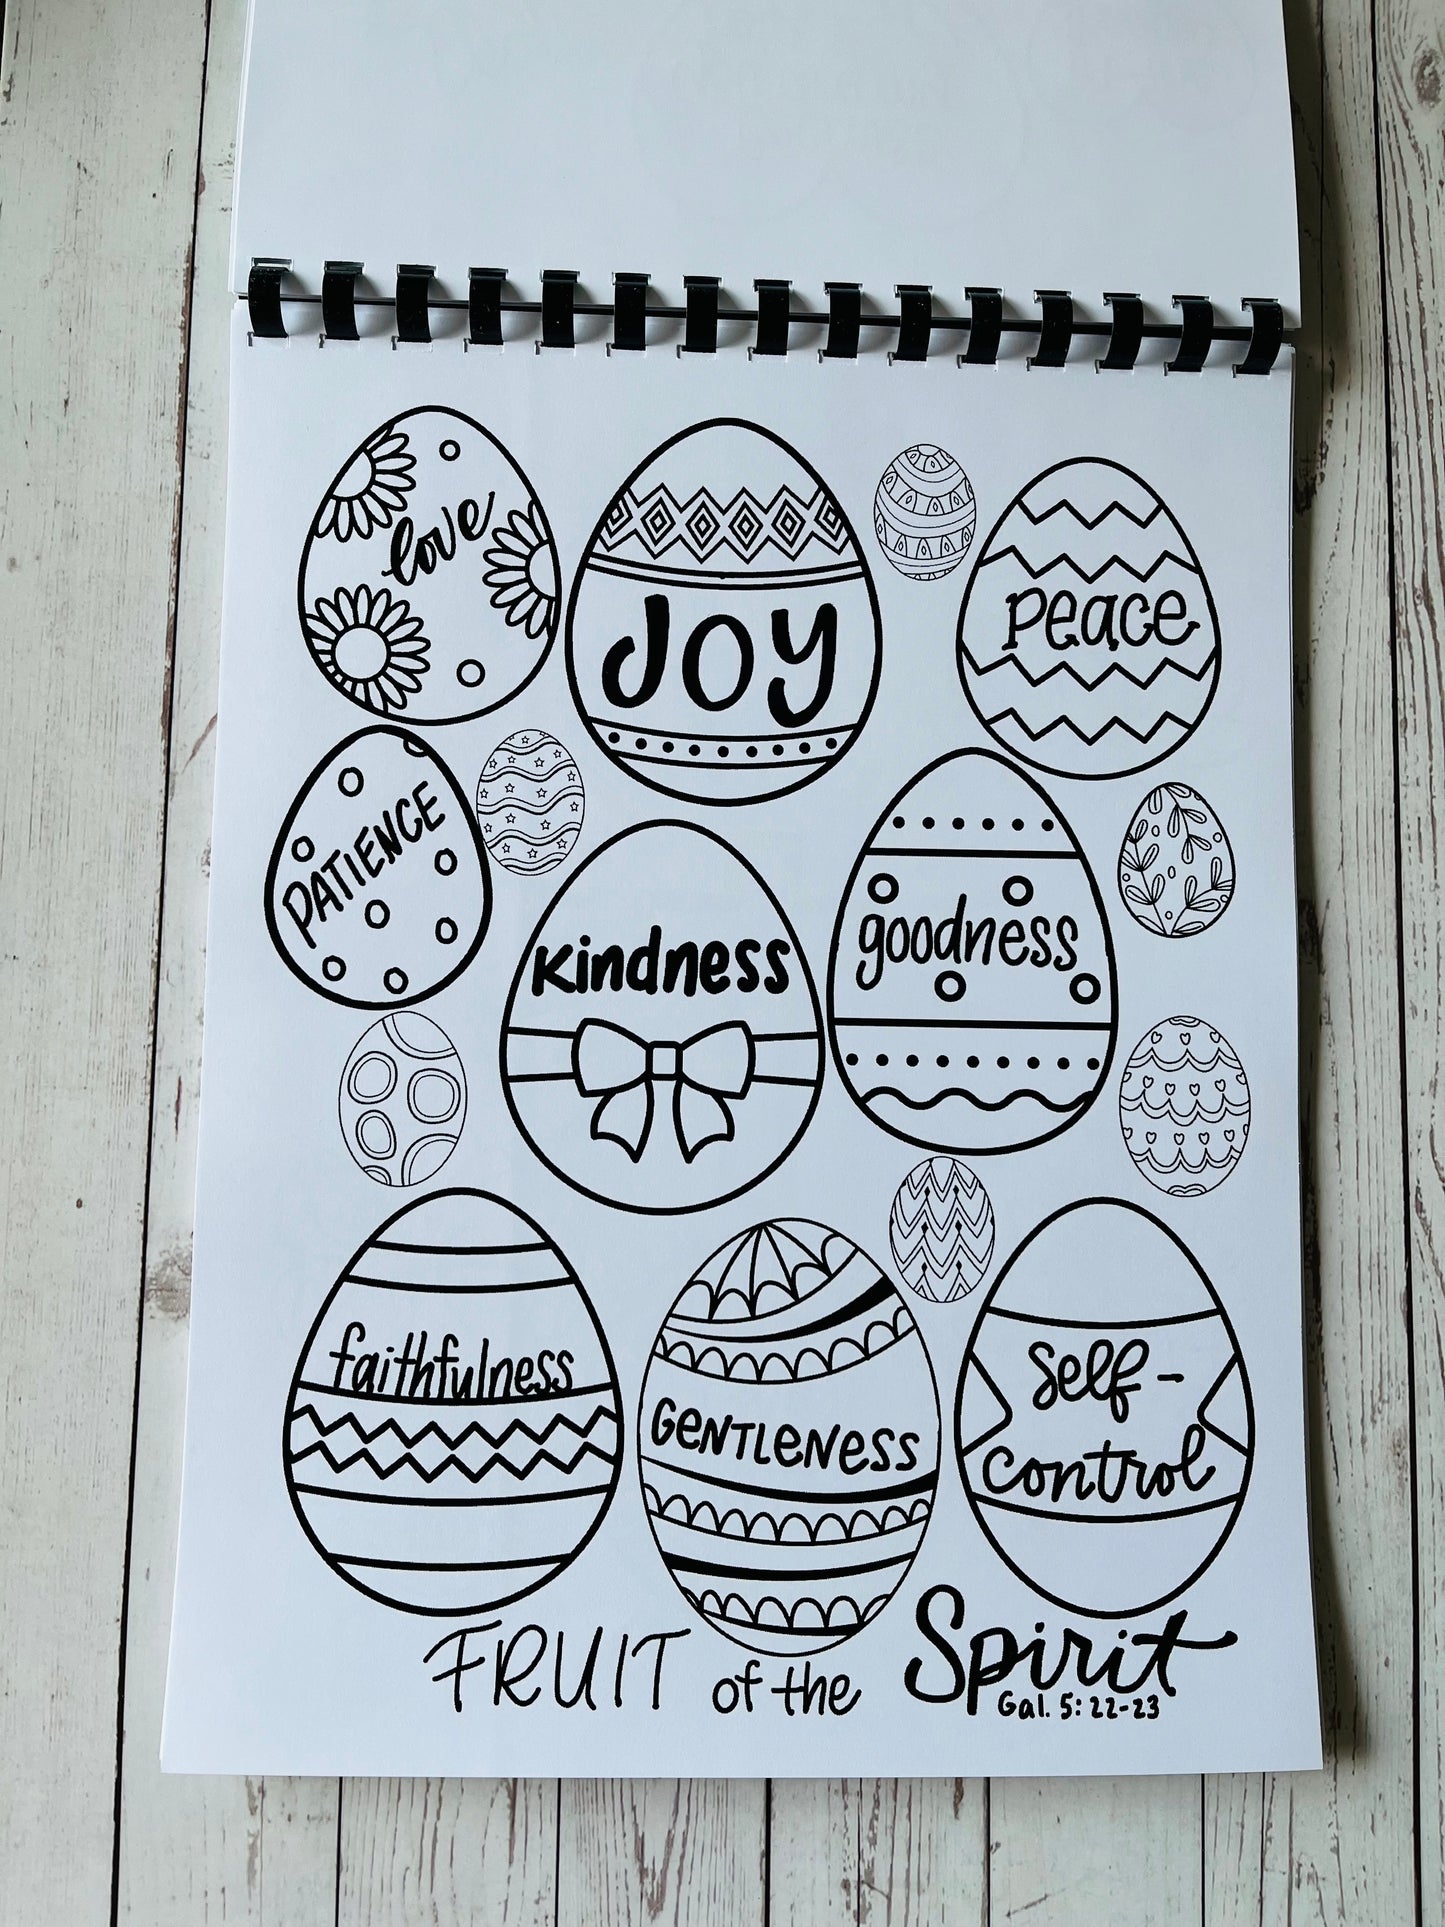 love
JOY
peace
PATIENCE
kindness
goodness
faithfulness
GeNTLeNess
self-
control
FRUIT of the Spirit
Gal. 5:22-23